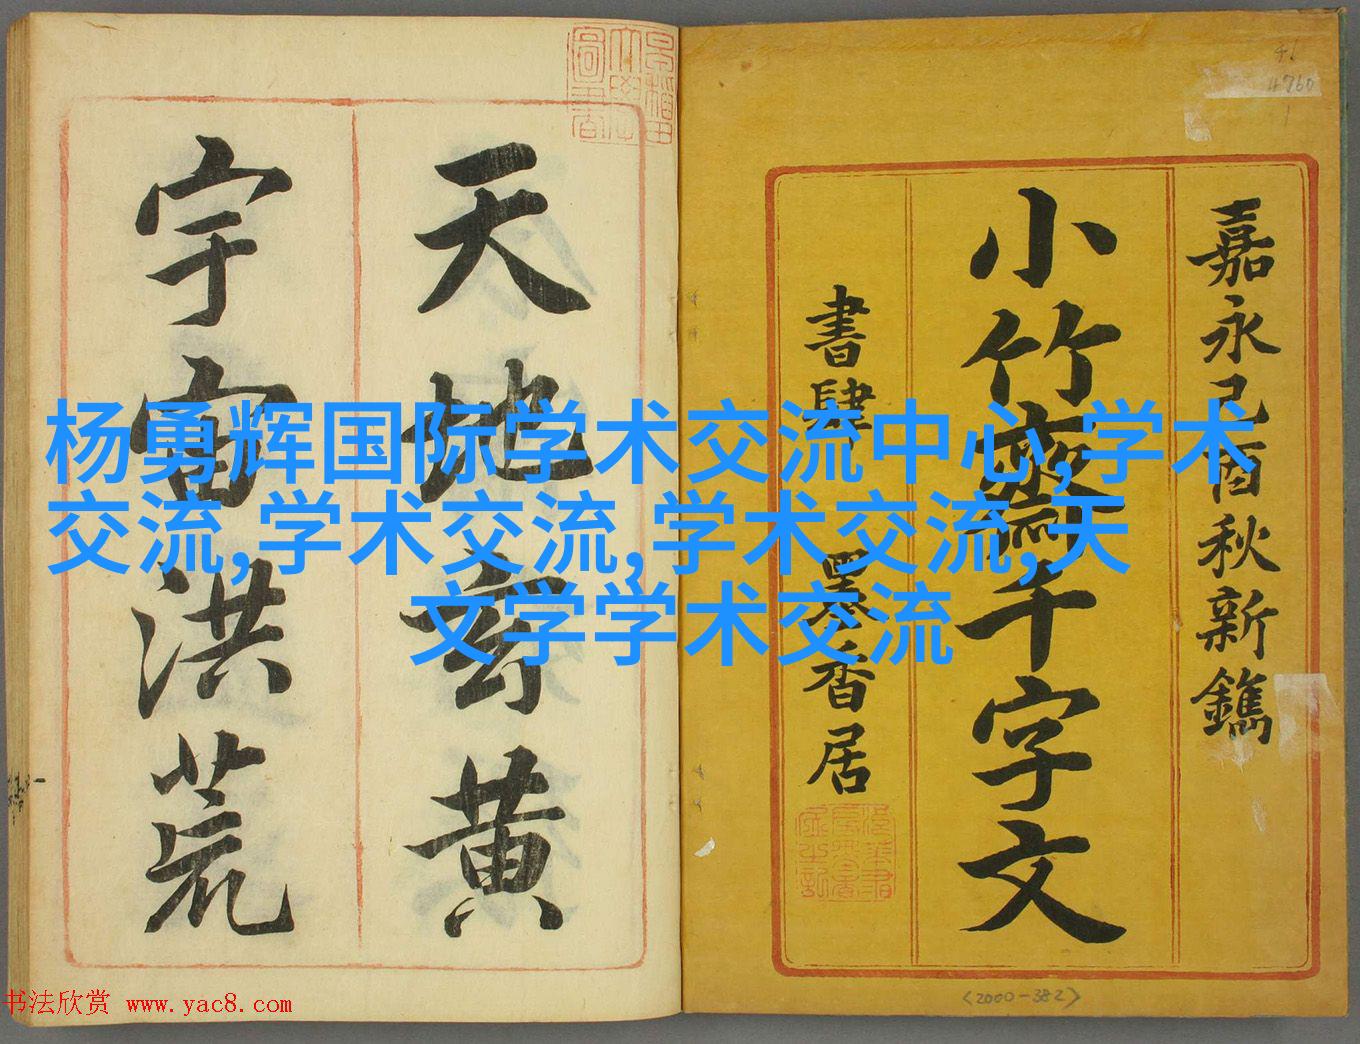 嘉永己酉秋新鐫
小竹齋千字文
書肆 墨香居
天地玄黄
宇宙洪荒
杨勇辉国际学术交流中心,学术
交流,学术交流,学术交流,天
文学学术交流
书法欣赏 www.yac8.com
46
4760
<2000-382>